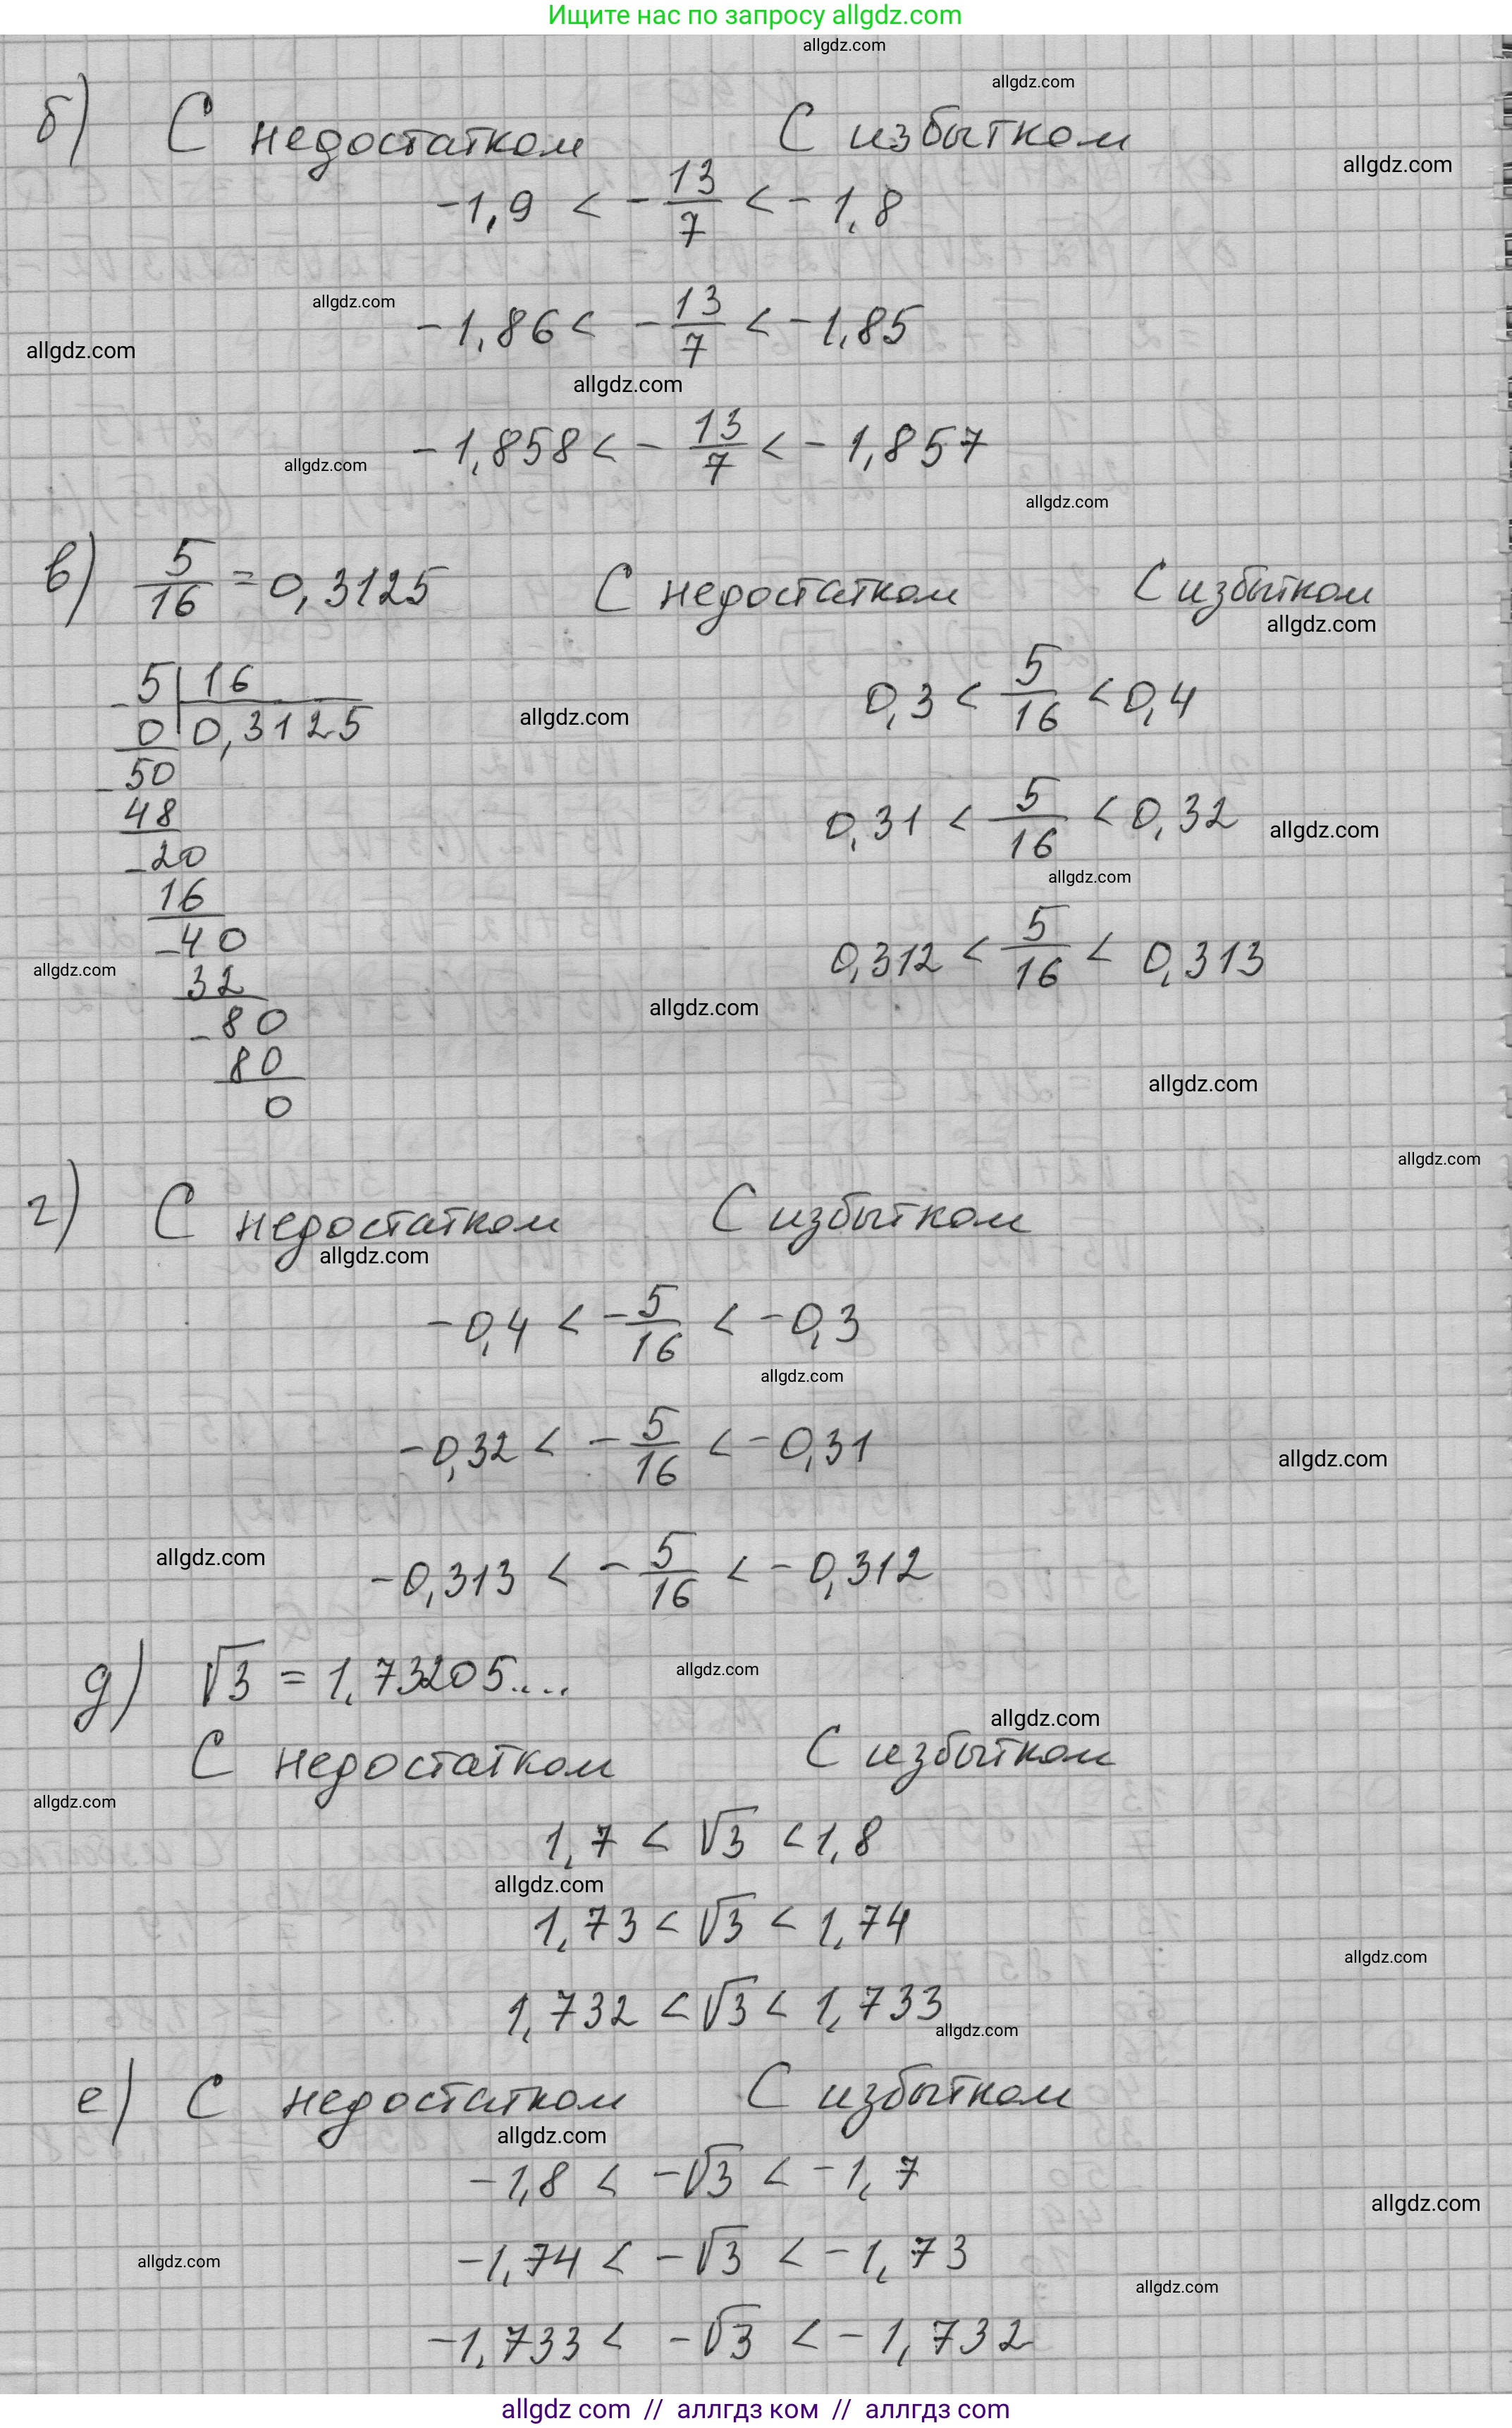 Ищите нас по запросу allgdz.com
allgdz.com
allgdz.com
б) С недостатком С избытком
allgdz.com
-1,9 < -13/7 < -1,8
allgdz.com
-1,86 < -13/7 < -1,85
allgdz.com
allgdz.com
-1,858 < -13/7 < -1,857
allgdz.com
allgdz.com
в) 5/16 = 0,3125 С недостатком С избытком
allgdz.com
5 | 16
-0 | 0,3125
allgdz.com
0,3 < 5/16 < 0,4
-50
48
0,31 < 5/16 < 0,32
allgdz.com
-20
allgdz.com
16
-40
0,312 < 5/16 < 0,313
allgdz.com
32
allgdz.com
-80
80
allgdz.com
0
allgdz.com
г) С недостатком С избытком
allgdz.com
-0,4 < -5/16 < -0,3
allgdz.com
-0,32 < -5/16 < -0,31
allgdz.com
allgdz.com
-0,313 < -5/16 < -0,312
д) √3 = 1,73205....
allgdz.com
allgdz.com
С недостатком С избытком
allgdz.com
1,7 < √3 < 1,8
allgdz.com
1,73 < √3 < 1,74
allgdz.com
1,732 < √3 < 1,733
allgdz.com
е) С недостатком С избытком
allgdz.com
-1,8 < -√3 < -1,7
allgdz.com
-1,74 < -√3 < -1,73
allgdz.com
allgdz.com
-1,733 < -√3 < -1,732
allgdz com // аллгдз ком // аллгдз com